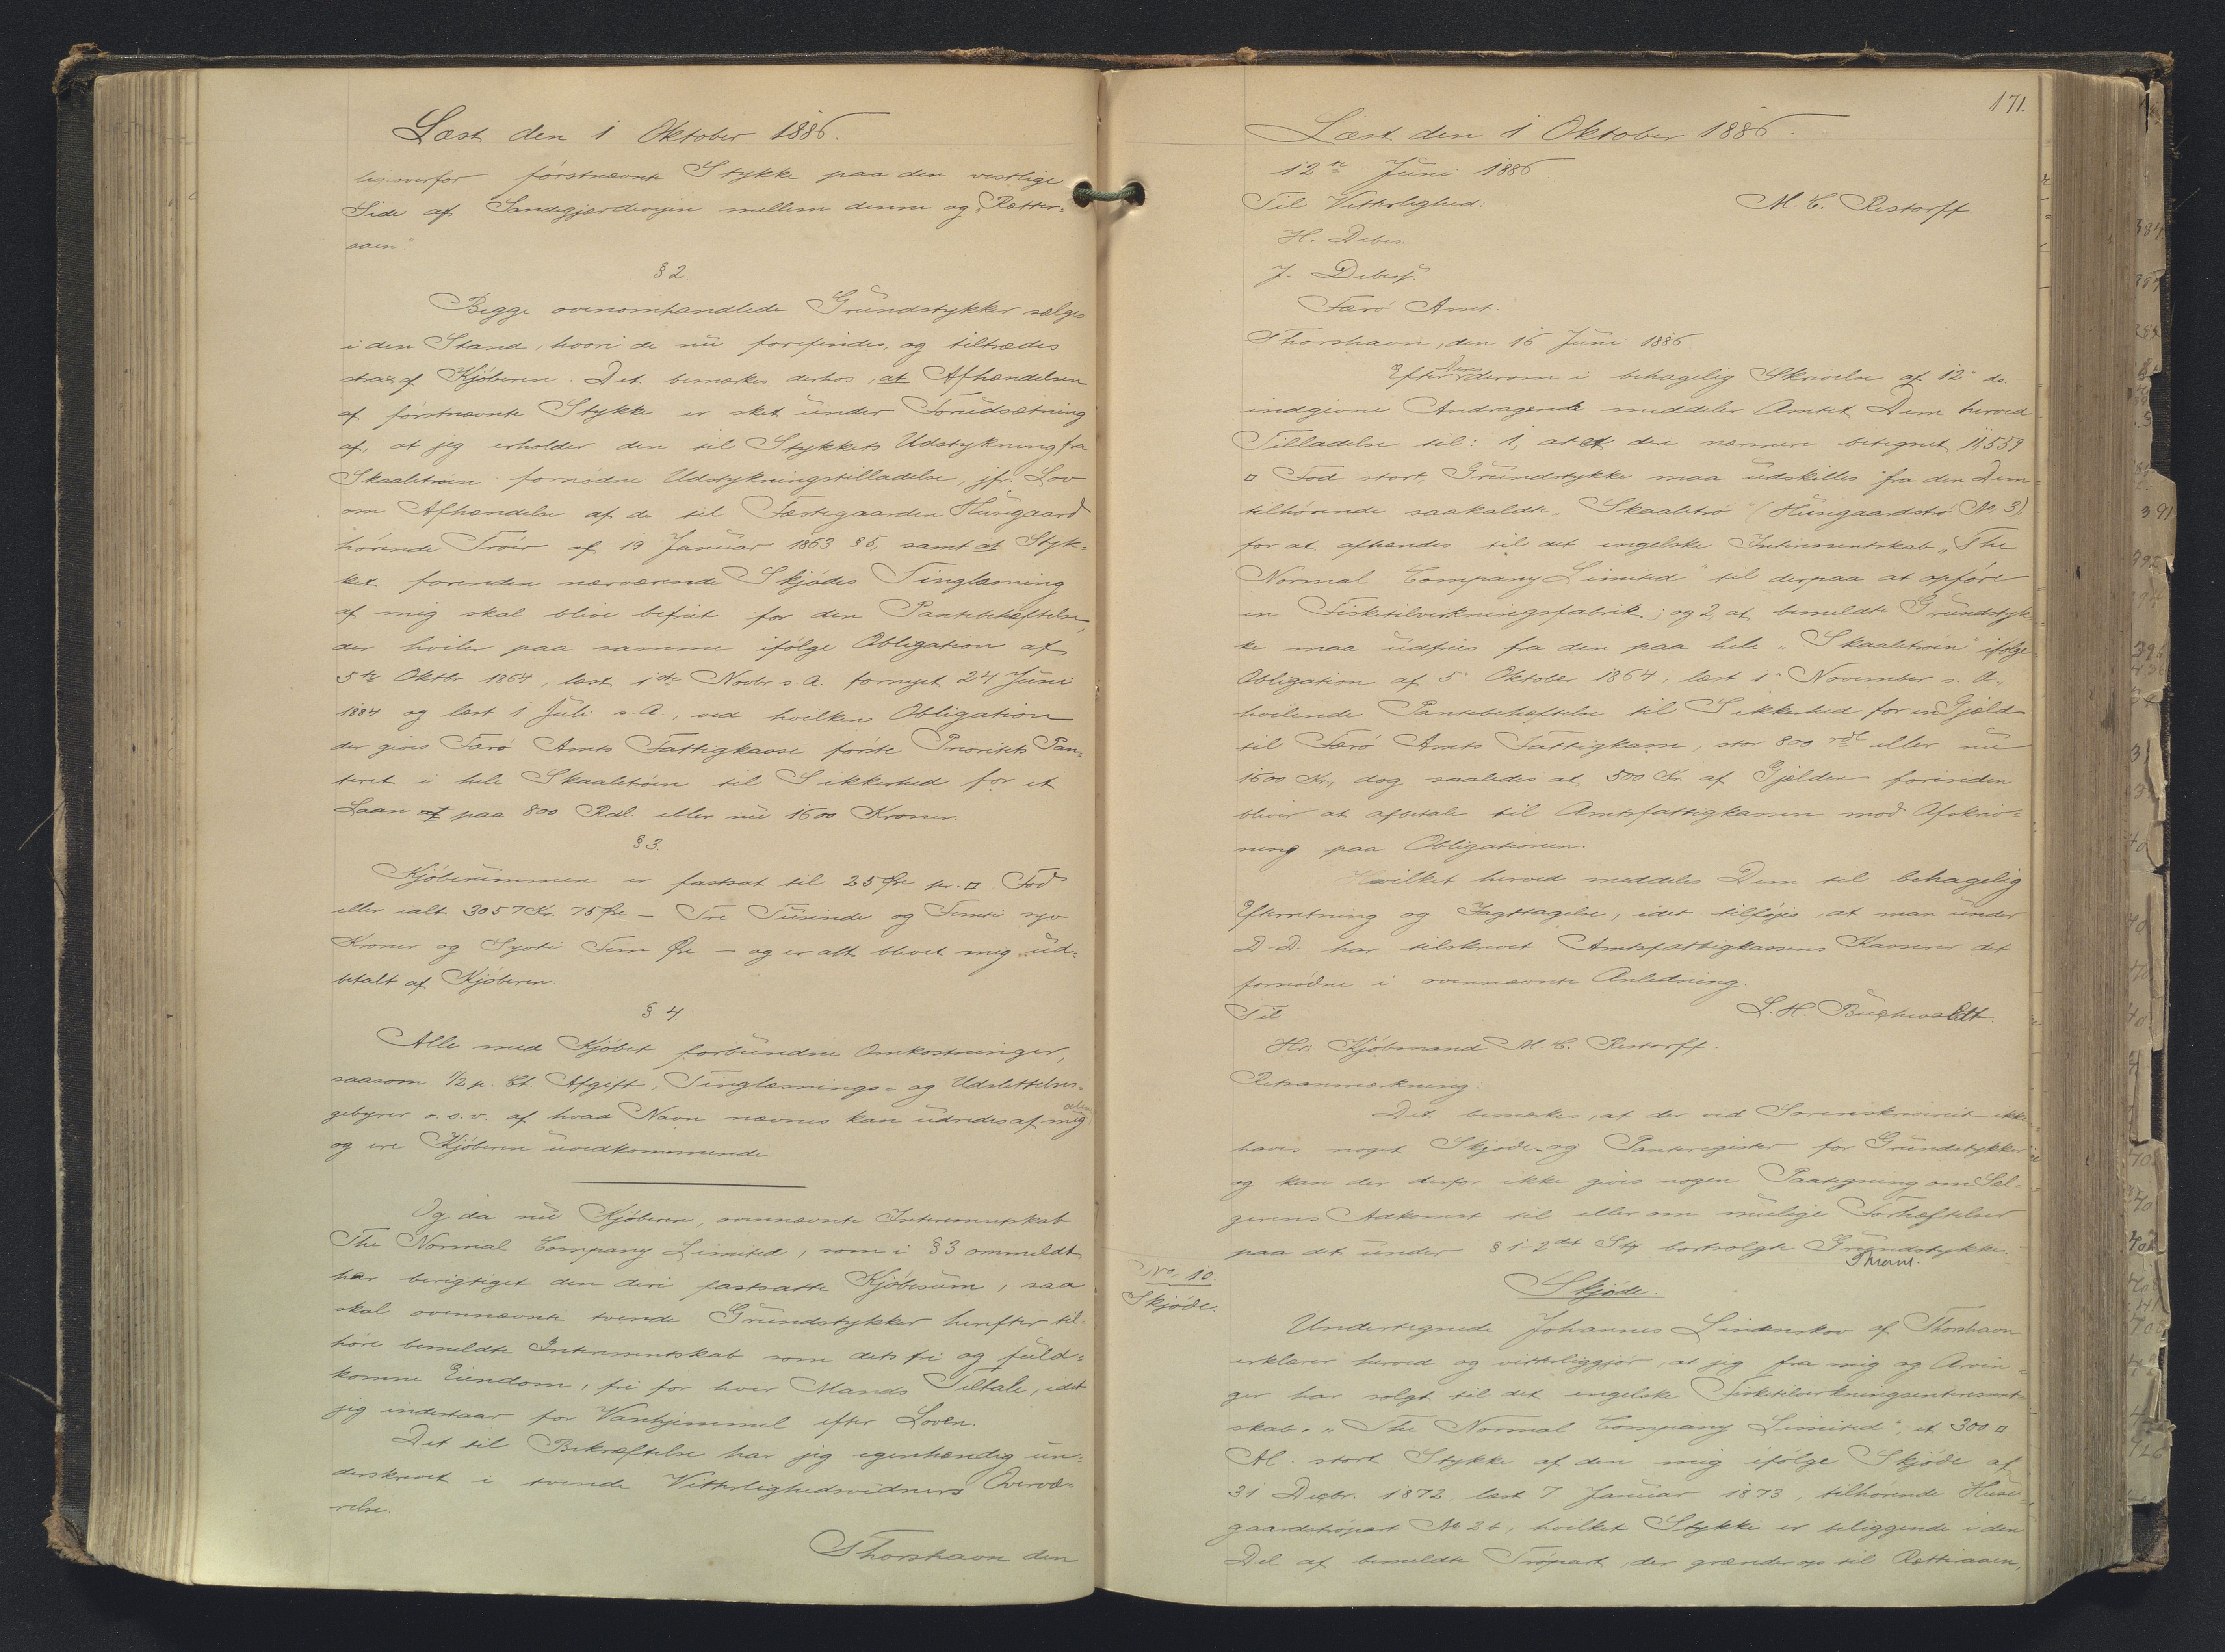 Læst den 1 Oktober 1886.
ligeoverfor förstnævnte Stykke paa den vestlige
Side af Sandegjærdevejen mellem denne og „Rætter-
aaen“.
§ 2.
Begge ovenomhandlede Grundstykker sælges
i den Stand, hvori de nu forefindes, og tiltrædes
strax af Kjöberen. Det bemærkes derhos, at Afhændelsen
af förstnævnte Stykke er sket under Forudsætning
af, at jeg erholder den til Stykkets Udstykning fra
Skaaletröen fornödne Udstykningstilladelse, jfr. Lov
om Afhændelse af de til Fæstegaarden Húsagaard
hörende Tröer af 19 Januar 1863 § 5, samt at Styk-
ket forinden nærværende Skjödes Tinglæsning
af mig skal blive befriet for den Pantebehæftelse,
der hviler paa samme ifölge Obligation af
5te Oktbr 1864, læst 1ste Novbr s. A. fornyet 24 Juni
1884 og læst 1 Juli s. A., ved hvilken Obligation
der gives Færö Amts Fattigkasse förste Prioritets Pan-
teret i hele Skaaletröen til Sikkerhed for et
Laan paa 800 Rdl. eller nu 1600 Kroner.
§ 3.
Kjöbesummen er fastsat til 25 Øre pr. □ Fod
eller ialt 3057 Kr. 75 Øre – Tre Tusinde og Femti syv
Kroner og Syvti Fem Øre – og er alt blevet mig ud-
betalt af Kjöberen
§ 4.
Alle med Kjöbet forbundne Omkostninger,
saasom 1/2 p. Ct. Afgift, Tinglæsnings- og Udslettelses-
gebyrer o. s. v. af hvad Navn nævnes kan udredes af mig alene
og ere Kjöberen uvedkommende
Og da nu Kjöberen, ovennævnte Interessentskab
The Normal Company Limited, som i § 3 ommeldt
har berigtiget den deri fastsatte Kjöbesum, saa
skal ovennævnte tvende Grundstykker herefter til-
höre bemeldte Interessentskab som dets fri og fuld-
komne Eiendom, fri for hver Mands Tiltale, idet
jeg indestaar for Vanhjemmel efter Loven.
Det til Bekræftelse har jeg egenhændig un-
derskrevet i tvende Vitterlighedsvidners Overvæ-
relse.
Thorshavn den
171.
Læst den 1 Oktober 1886.
12te Juni 1886.
Til Vitterlighed: M. C. Restorff.
H. Debes.
J. Debes.
Færö Amt.
Thorshavn, den 16 Juni 1886.
Efter Deres derom i behagelig Skrivelse af 12 ds.
indgivne Andragende meddeler Amtet Dem herved
Tilladelse til: 1, at et deri nærmere betegnet 11,559
□ Fod stort, Grundstykke maa udskilles fra den Dem
tilhörende saakaldte „Skaaletrö“ (Húsagaardströ No 3)
for at afhændes til det engelske Interessentskab „The
Normal Company Limited“ til derpaa at opföre
en Fisketilvirkningsfabrik; og 2, at bemeldte Grundstyk-
ke maa udfries fra den paa hele „Skaaletröen“ ifölge
Obligation af 5 Oktober 1864, læst 1 November s. A.,
hvilende Pantebehæftelse til Sikkerhed for en Gjæld
til Færö Amts Fattigkasse, stor 800 rdl eller nu
1600 Kr., dog saaledes at 500 Kr. af Gjælden forinden
bliver at afbetale til Amtsfattigkassen mod Afskriv-
ning paa Obligationen.
Hvilket herved meddeles Dem til behagelig
Efterretning og Iagttagelse, idet tilföjes, at man under
D. D. har tilskrevet Amtsfattigkassens Kasserer det
fornödne i ovennævnte Anledning.
Til L. H. Buchwaldt.
Hr. Kjöbmand M. C. Restorff.
Retsanmærkning:
Det bemærkes, at der ved Sorenskriveriet ikke
haves noget Skjöde- og Panteregister for Grundstykker
og kan der derfor ikke gives nogen Paategning om Sæl-
gerens Adkomst til eller om mulige Forhæftelser
paa det under § 1-2det Stk bortsolgte Grundstykke.
No 10.
Skjöde.
Skjöde.
Undertegnede Johannes Lindenskov af Thorshavn
erklærer herved og vitterliggjör, at jeg fra mig og Arvin-
ger har solgt til det engelske Fisketilvirkningsinteressent-
skab, „The Normal Company Limited“, et 300 □
Al. stort Stykke af den mig ifölge Skjöde af
31 Decbr. 1872 læst 7 Januar 1873, tilhörende Húse-
gaardströpart No 2 b, hvilket Stykke er beliggende i den
Del af bemeldte Tröpart, der grændser op til Rætteraaen,